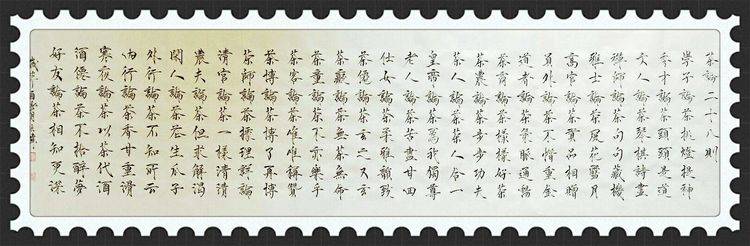 茶論二十八則
學子論茶挑燈提神
秀才論茶頭頭是道
文人論茶琴棋詩畫
禪師論茶句句藏機
雅士論茶風花雪月
高官論茶貢品相贈
員外論茶不惜重金
道者論茶氣脈通暢
茶商論茶樣樣好茶
茶農論茶步步功夫
茶人論茶茶人合一
皇帝論茶為我獨尊
老人論茶苦盡甘回
仕女論茶平雅韻致
茶仙論茶玄之又玄
茶癡論茶無茶無命
茶童論茶不亦樂乎
茶客論茶唯唯讚
茶博論茶博了再博
茶師論茶理評論
清官論茶一樣清清
農夫論茶但求解渴
閑人論茶花生瓜子
外行論茶不知所云
內行論茶香甘重滑
寒夜論茶以茶代酒
酒德論茶不醉夢
好友論茶相知更深